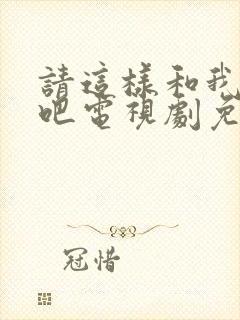 請這樣和我
吧電視劇免
冠惜